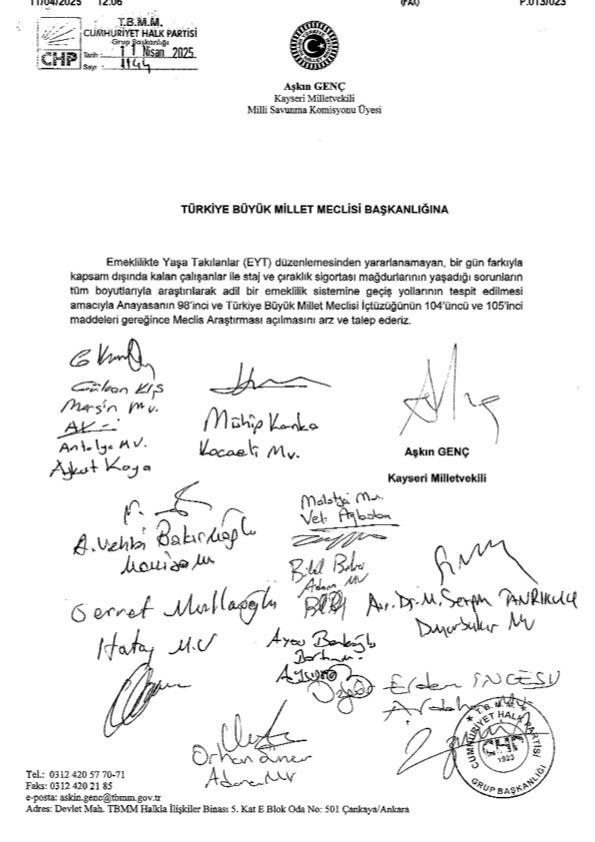 11/04/2025 12:06 (FAX) P.013/023
T.B.M.M.
CUMHURİYET HALK PARTİSİ
Grup Başkanlığı
Tarih : 11 Nisan 2025
Sayı : 1144
CHP
Aşkın GENÇ
Kayseri Milletvekili
Milli Savunma Komisyonu Üyesi
TÜRKİYE BÜYÜK MİLLET MECLİSİ BAŞKANLIĞINA
Emeklilikte Yaşa Takılanlar (EYT) düzenlemesinden yararlanamayan, bir gün farkıyla
kapsam dışında kalan çalışanlar ile staj ve çıraklık sigortası mağdurlarının yaşadığı sorunların
tüm boyutlarıyla araştırılarak adil bir emeklilik sistemine geçiş yollarının tespit edilmesi
amacıyla Anayasanın 98'inci ve Türkiye Büyük Millet Meclisi İçtüzüğünün 104'üncü ve 105'inci
maddeleri gereğince Meclis Araştırması açılmasını arz ve talep ederiz.
Gülcan KIŞ
Mersin Mv.
Antalya MV.
Aykut Kaya
Mühip Kanko
Kocaeli Mv.
Aşkın GENÇ
Kayseri Milletvekili
A. Vehbi Bakırlıoğlu
Manisa
Malatya Mv.
Veli Ağbaba
Adana MV
Servet Mullaoğlu
Hatay M.V
Av. Dr. M. Sezgin TANRIKULU
Diyarbakır MV
Bartın
Erdem İNCESU
Orhan Sümer
Adana MV
T.B.M.M.
CUMHURİYET HALK PARTİSİ
1923
GRUP BAŞKANLIĞI
Tel.: 0312 420 57 70-71
Faks: 0312 420 21 85
e-posta: askin.genc@tbmm.gov.tr
Adres: Devlet Mah. TBMM Halkla İlişkiler Binası 5. Kat E Blok Oda No: 501 Çankaya/Ankara